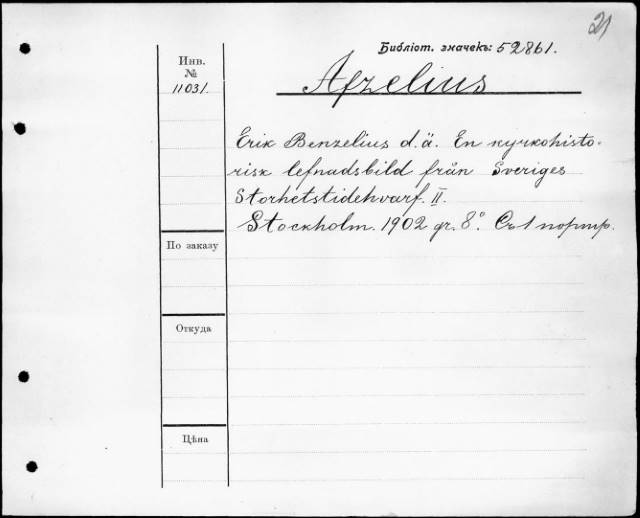 21
Библіот. значекъ: 52861.
Инв.
№
11031.
Afzelius
Erik Benzelius d.ä. En kyrkohisto-
risk lefnadsbild från Sveriges
Storhetstidehvarf. II.
Stockholm. 1902 gr. 8°. Съ 1 портр.
По заказу
Откуда
Цѣна